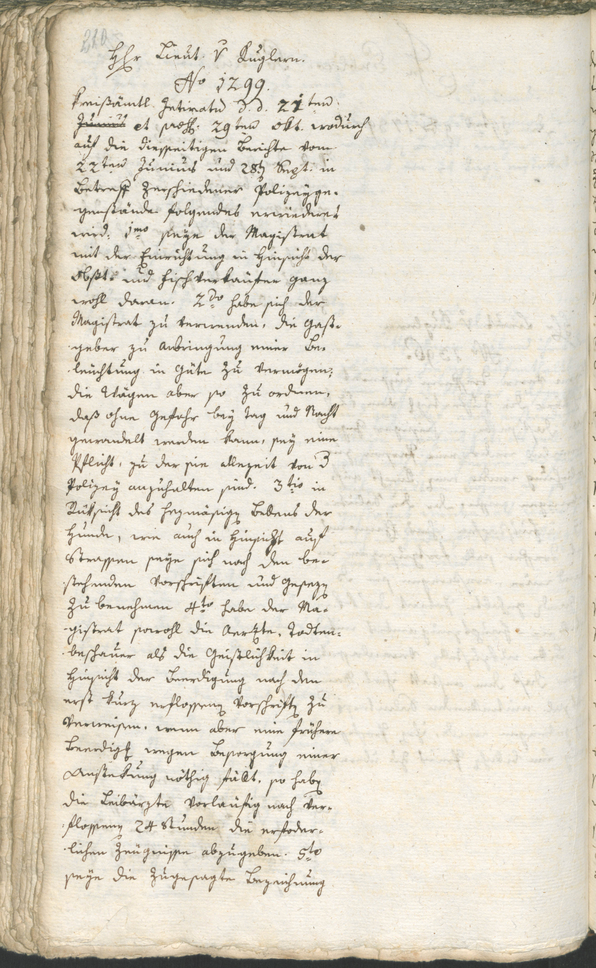 210
Hhr Lieut. v Kuglern.
No 1299.
Kreisämtl. Intimatu d. d. 21ten
Junius et praes. 29ten Okt. wodurch
auf die diesseitigen Berichte vom
22ten Junius und 28t Sept. in
Betreff verschiedener Polizeyge-
genstände folgendes erwiedert
wird; 1mo seye der Magistrat
mit der Einrichtung in Hinsicht der
Obst- und Fischverkäufer ganz
wohl daran. 2do habe sich der
Magistrat zu verwenden, die Gast-
geber zu Anbringung einer Be-
leuchtung in Güte zu vermögen;
die Wägen aber so zu ordnen,
daß ohne Gefahr bey Tag und Nacht
gewandelt werden kann, sey eine
Pflicht, zu der sie allezeit von
Polizey anzuhalten sind. 3tio in
Rüksicht des Bellens der
Hunde, wie auch in Hinsicht auf
Strassen seye sich nach den be-
stehenden Vorschriften und Gesezen
zu benehmen 4to habe der Ma-
gistrat sowohl die Aerzte, Todten-
beschauer als die Geistlichkeit in
Hinsicht der Beerdigung nach den
erst kurz erflossenen Vorschriften zu
verweisen, wenn aber eine frühere
Beerdigg wegen Besorgung einer
Anstekung nöthig fällt, so haben
die Leibärzte vorläufig nach ver-
flossenen 24 Stunden die erforder-
lichen Zeugnisse abzugeben. 5to
seye die zugesagte Bezeichnung